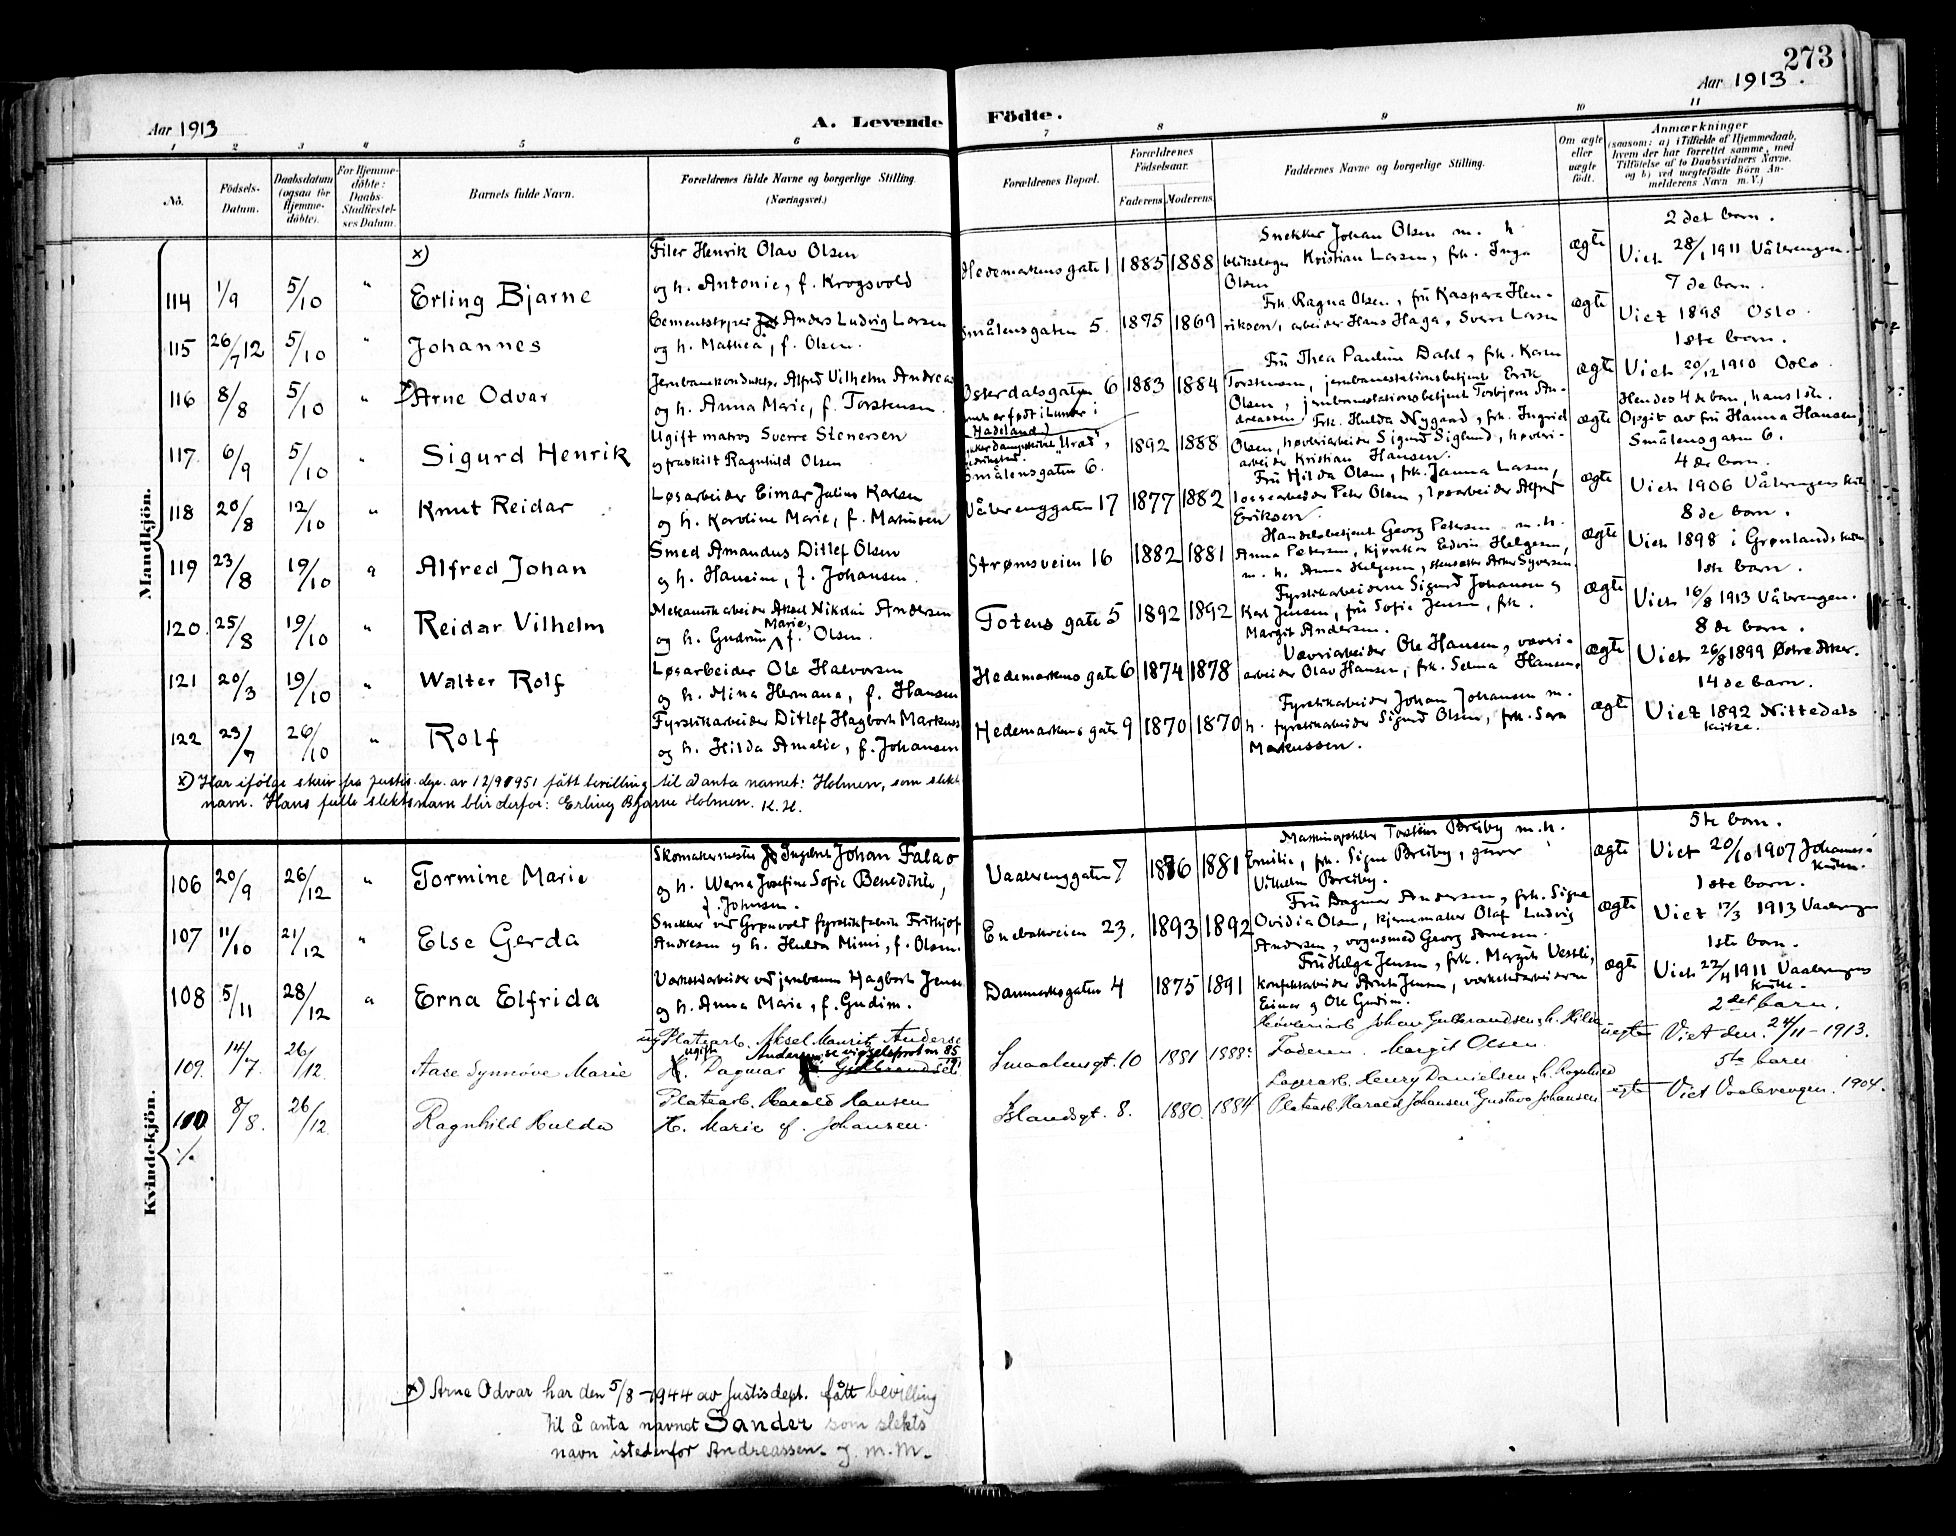 273
Aar 1913.
Aar 1913
A. Levende Födte.
1 2 3 4 5 6 7 8 9 10 11
No.
Födsels-Datum.
Daabsdatum (ogsaa for Hjemme-döbte).
For Hjemme-döbte: Daabs-Stadfæstel-ses Datum.
Barnets fulde Navn.
Forældrenes fulde Navne og borgerlige Stilling. (Næringsvei.)
Forældrenes Bopæl.
Forældrenes Födselsaar.
Faderens. Moderens.
Faddernes Navne og borgerlige Stilling.
Om ægte eller uægte födt.
Anmærkninger
(saasom: a) i Tilfælde af Hjemmedaab,
hvem der har forrettet samme, med
Tilföielse af to Daabsvidners Navne,
og b) ved uægtefödte Börn An-
melderens Navn m. V.)
Mandkjön.
x)
Filer Henrik Olav Olsen
og h. Antonie, f. Krogsvold
114 1/9 5/10 " Erling Bjarne
Hedemarkens gate 1 1885 1888
Snekker Johan Olsen m. h.
blikslager Kristian Larsen, frk. Inga
Olsen
ægte
2 det barn.
Viet 28/1 1911 Vålerengen.
115 26/7 12 5/10 " Johannes
Cementstøper Anders Ludvig Larsen
og h. Mathea, f. Olsen.
Smålensgaten 5. 1875 1869
Frk. Ragna Olsen, fru Kaspara Hen-
riksen, arbeider Hans Haga, Sverre Larsen
ægte
7 de barn.
Viet 1898 Oslo.
116 8/8 5/10 " x) Arne Odvar
Jernbanekonduktør Alfred Vilhelm Andreas
og h. Anna Marie, f. Torstensen.
Østerdalsgaten 6 1883 1884
født i Lunner i
Hadeland)
Fru Thea Pauline Dahl, frk. Karen
Torstensen, jernbanestationsbetjent Erik
Olsen, jernbanestationsbetjent Torbjørn An-
dreassen
ægte
1ste barn.
Viet 20/12 1910 Oslo.
117. 6/9 5/10 Sigurd Henrik
Ugift matros Sverre Stenersen
og fraskilt Ragnhild Olsen
"Urad",
Smålensgaten 6.
1892 1888
Frk. Hulda Nygaard, frk. Ingrid
Olsen, høvleriarbeider Sigurd Siglund, høvleri-
arbeider Kristian Hansen.
ægte
Hendes 4 de barn, hans 1ste.
Opgit av fru Hanna Hansen,
Smålensgaten 6.
118 20/8 12/10 " Knut Reidar
Løsarbeider Eimar Julius Karlsen
og h. Karoline Marie, f. Martinsen
Vålerenggaten 17 1877 1882
Fru Hilda Olsen, frk. Janna Larsen,
lossearbeider Peter Olsen, løsarbeider Alfred
Eriksen.
ægte
4 de barn.
Viet 1906 Vålerengens kirk
119 23/8 19/10 " Alfred Johan
Smed Amandus Ditlef Olsen
og h. Hansine, f. Johansen.
Strømsveien 16 1882 1881
Handelsbetjent Georg Petersen m. h.
Anna Petersen, kjørekar Edvin Helgesen,
m. h. Anna Helgesen, Syversen
ægte
8 de barn.
Viet 1898 i Grønlands kirke
120. 25/8 19/10 " Reidar Vilhelm
Mekanikarbeider Aksel Nikolai Andersen
og h. Gudrun Marie, f. Olsen.
Totens gate 5 1892 1892
Fyrstikarbeiderne Sigurd Johansen og
Karl Jensen, fru Sofie Jensen, frk.
Margit Andersen.
ægte
1ste barn.
Viet 16/8 1913 Vålerengen.
121 20/3 19/10 " Walter Rolf
Løsarbeider Ole Halvorsen
og h. Mina Hermana, f. Hansen
Hedemarkens gate 6 1874 1878
Væveriarbeider Ole Hansen, væveri-
arbeider Olav Hansen, frk. Selma Hansen.
ægte
8 de barn.
Viet 26/8 1899 Østre Aker.
122 23/7 26/10 " Rolf
Fyrstikarbeider Ditlef Hagbart Markuss
og h. Hilda Amalie, f. Johansen
Hedemarkens gate 9 1870 1870
Fyrstikarbeider Johan Johansen m.
h. fyrstikarbeider Sigurd Olsen, frk. Sara
Markussen.
ægte
14 de barn.
Viet 1892 Nittedals
kirke.
x) Har ifølge skriv fra Justis.dep. av 12/9 1951 fått bevilling til å anta navnet: Holmen, som slekt
navn. Hans fulle slektsnavn blir derfor: Erling Bjarne Holmen. K.H.
Kvindekjön.
106 20/9 26/12 " Tormine Marie
Skomakermester Ingebret Johan Falao
og h. Werna Josefine Sofie Benedikte,
f. Johnsen.
Vaalerenggaten 7 1876 1881
Maskinopsetter Torstein Breiby m. h.
Emilie, frk. Signe Breiby, garver
Vilhelm Breiby.
ægte
5te barn.
Viet 20/10 1907 Johannes-
kirken.
107 11/10 21/12 " Else Gerda
Snekker ved Grønvold fyrstikfabrik Fritjof
Andresen og h. Hulda Mimi, f. Olsen.
Enebakveien 23. 1893 1892
Fru Dagmar Andersen, frk. Signe
Ovidia Olsen, kjernemaker Olaf Ludvig
Andersen, vognsmed Georg Arnesen.
ægte
1ste barn.
Viet 17/3 1913 Vaalerengen
108 5/11 28/12 " Erna Elfrida
Verkstedarbeider ved jernbanen Hagbart Jense
og h. Anna Marie, f. Gudim.
Danmarksgaten 4 1875 1891
Fru Helga Jensen, frk. Margit Vestli,
konfektarbeider Arnt Jensen, verkstedarbeiderne
Einar og Ole Gudim.
ægte
1ste barn.
Viet 22/4 1911 Vaalerengens
kirke.
109. 14/7. 26/12. Aase Synnöve Marie
ug Platearb. Aksel Mauritz Anderse
ugift Andersen se vigselsprot nr 85
H. Dagmar f. Gulbrandsen
Smaalensgt. 10 1881 1888
Høvleriarb. Johan Gulbrandsen, h. Hilda
Faderen. Margit Olsen.
uegte
2det barn.
Viet den 24/11 - 1913.
110 8/8. 26/12 Ragnhild Hulda
Platearb. Harald Hansen
H. Marie f. Johansen.
Islandsgt. 8. 1880. 1884
Lagerarb. Henry Danielsen, h. Ragnhild
Platearb Harald Johansen Gustava Johansen
egte
5te barn
Viet Vaalerengen. 1904.
x) Arne Odvar har den 5/8 - 1944 av Justisdept. fått bevilling
til å anta navnet Sander som slekts
navn istedenfor Andreassen. J. m. M.